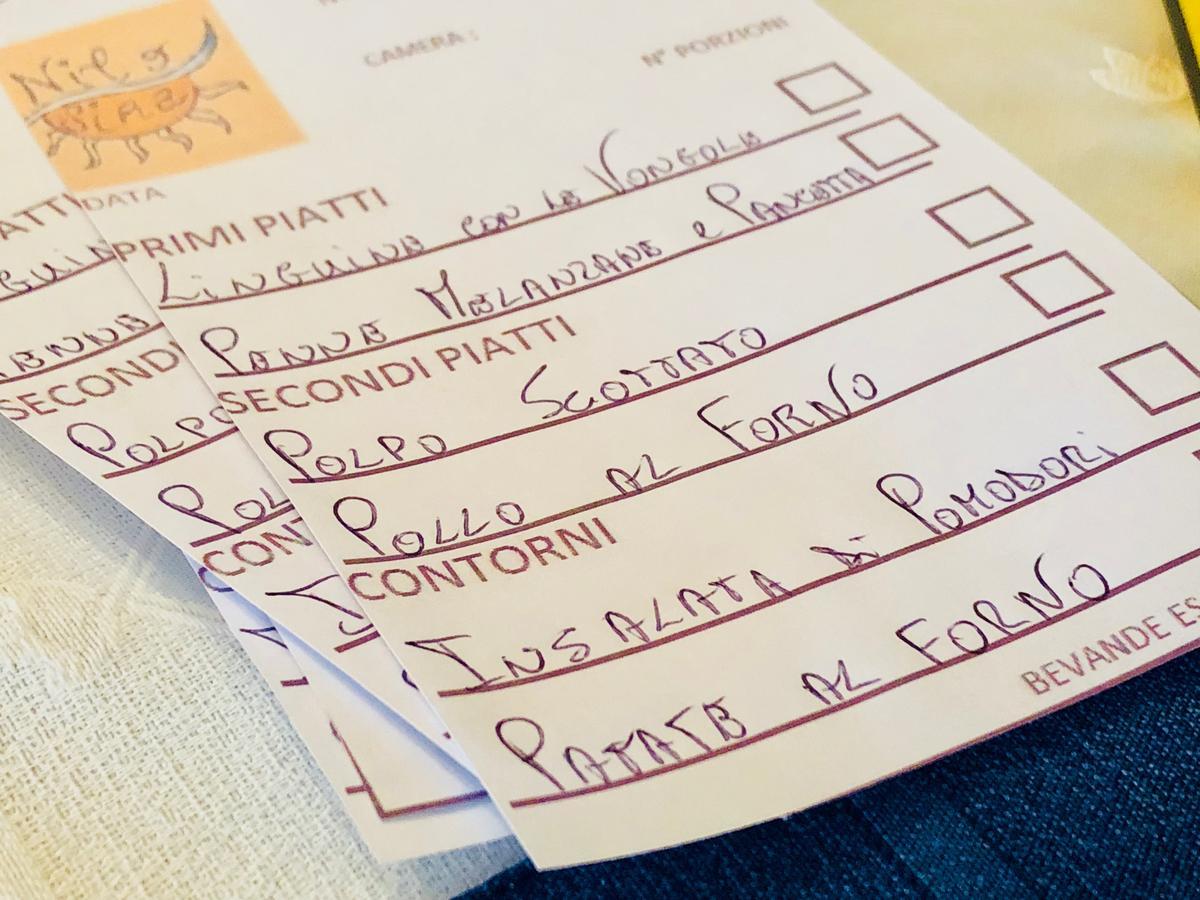 CAMERA:
N° PORZIONI
DATA
PRIMI PIATTI
LINGUINE CON LE VONGOLE
PENNE MELANZANE e PANCETTA
SECONDI PIATTI
POLPO SCOTTATO
POLLO AL FORNO
CONTORNI
INSALATA di POMODORI
PATATE AL FORNO
BEVANDE ES
ATTI
GUIN
ENNE
SECOND
POLPO
POL
CON